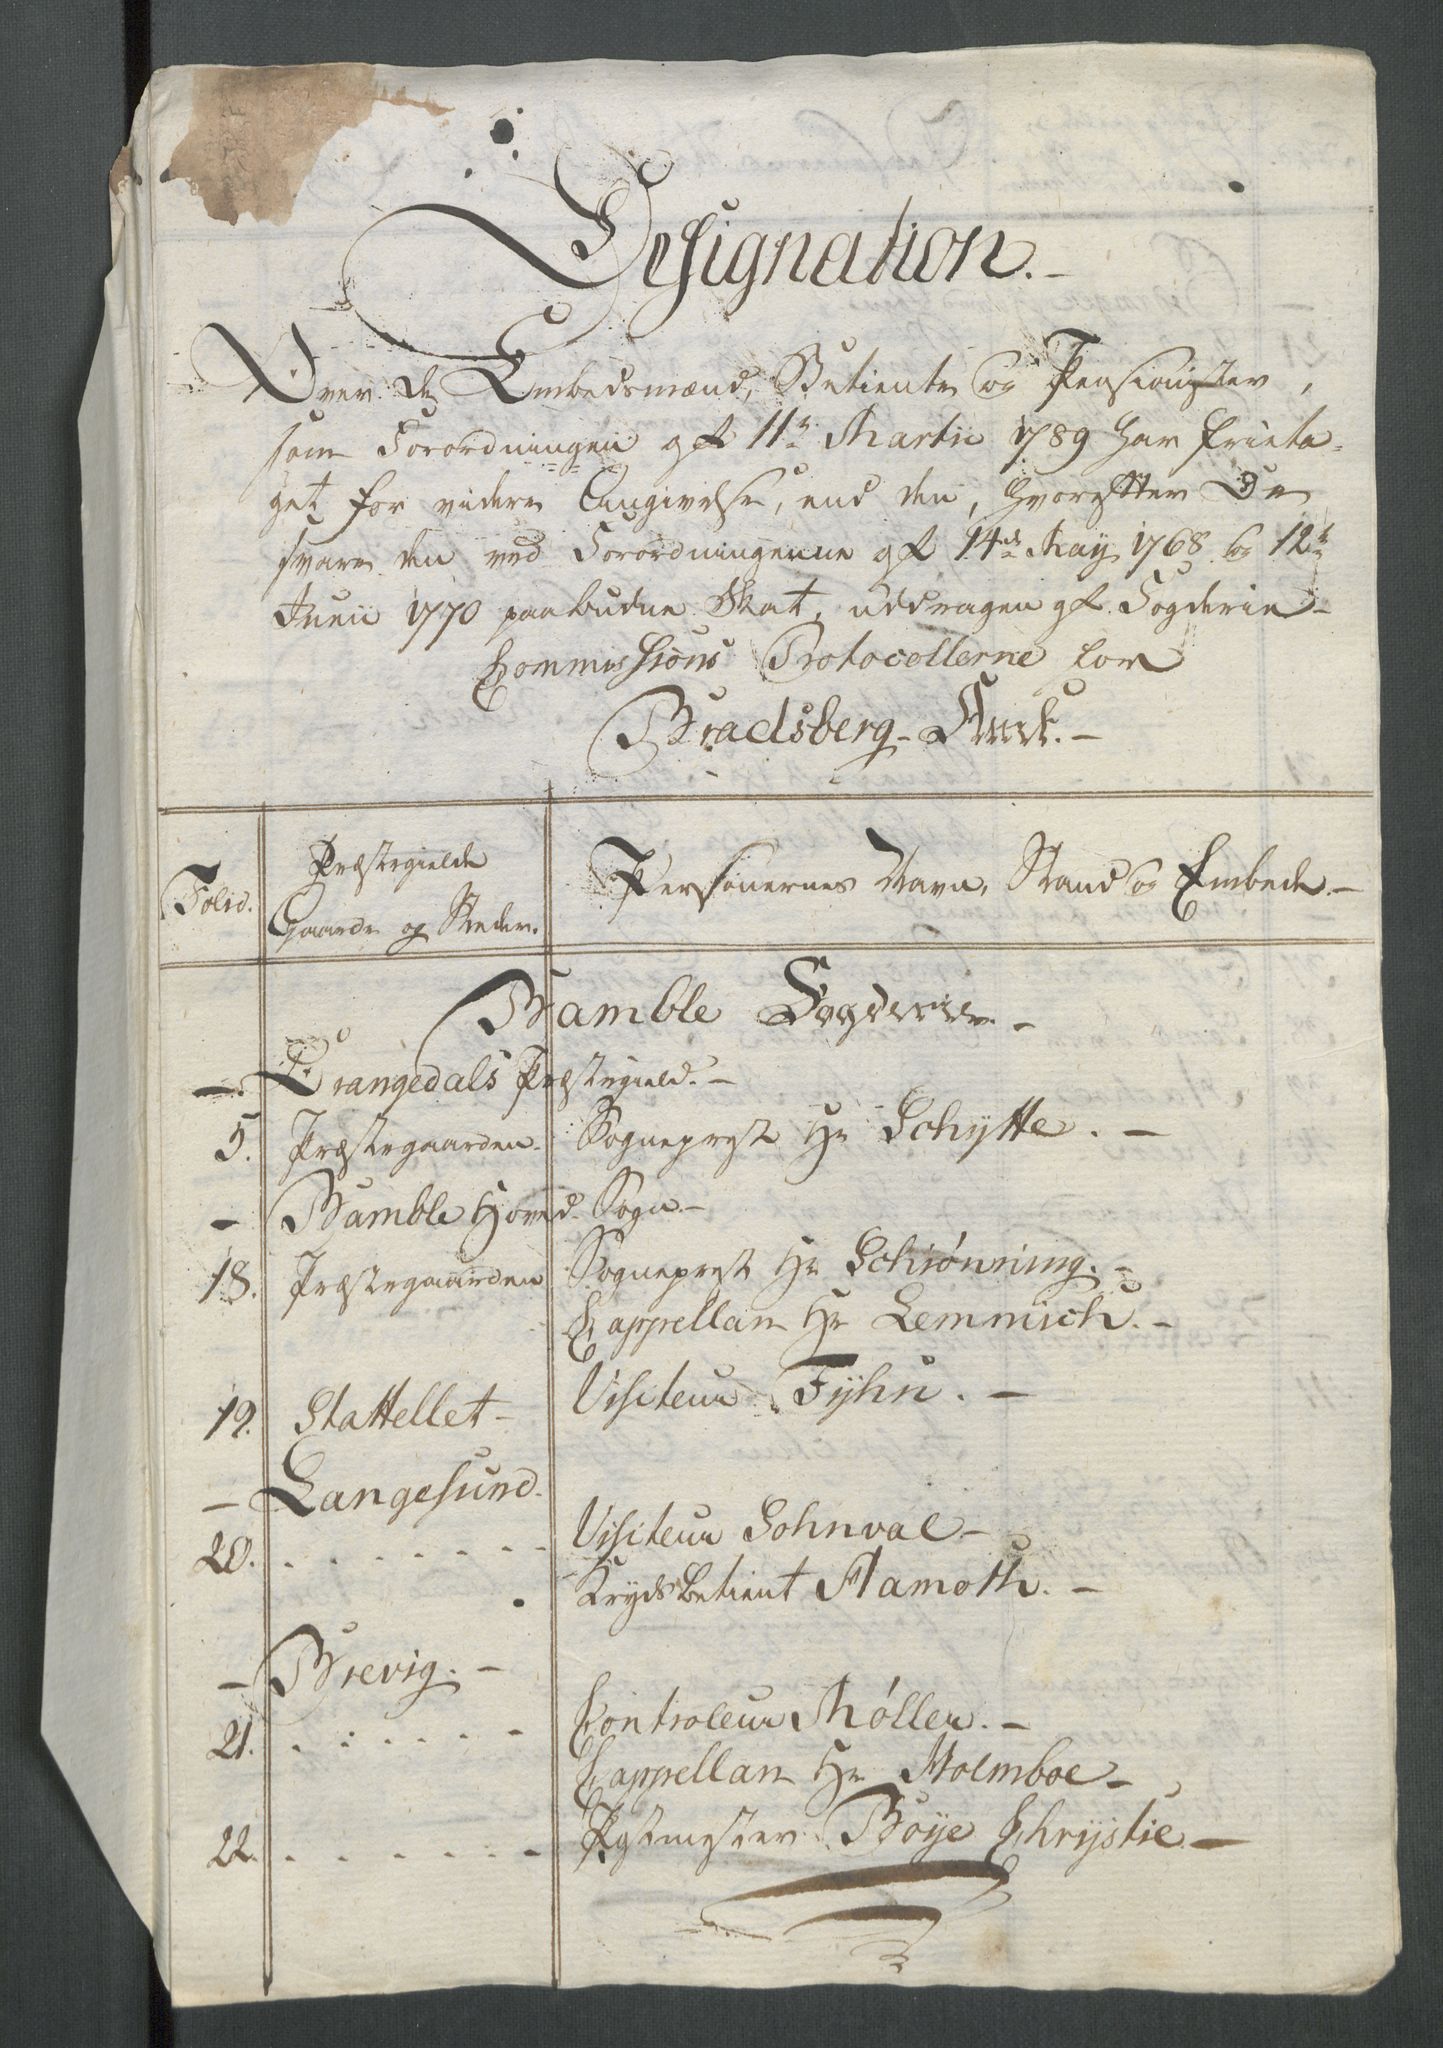 Designation.
Over de Embedsmænd, Betiente og Pensionister,
som Forordningen af 11te Martii 1789 har frieta-
get for videre Angivelse, end den, hvorefter De
svare den ved Forordningerne af 14de May 1768 og 12te
Junii 1770 paabudne Skat, uddragen af Fogderie-
Commissions Protocollerne for
Bradsberg Amt.
Folio.
Præstegielde
Gaarde og Steder.
Personernes Navn, Stand og Embede.
Bamble Fogderie.
Drangedals Præstegield.
5. Præstegaarden Sognepræst Hr Schytte.
Bamble Hoved Sogn
18. Præstegaarden Sognepræst Hr Schiønning.
Cappellan Hr Lemmich.
19. Stattellet Visiteur Fyhn.
Langesund.
20. Visiteur Sohnval
Krydsbetient Flamoth.
Brevig.
21. Controleur Møller.
Cappellan Hr Holmboe
22. Postmester Boye Chrystie.